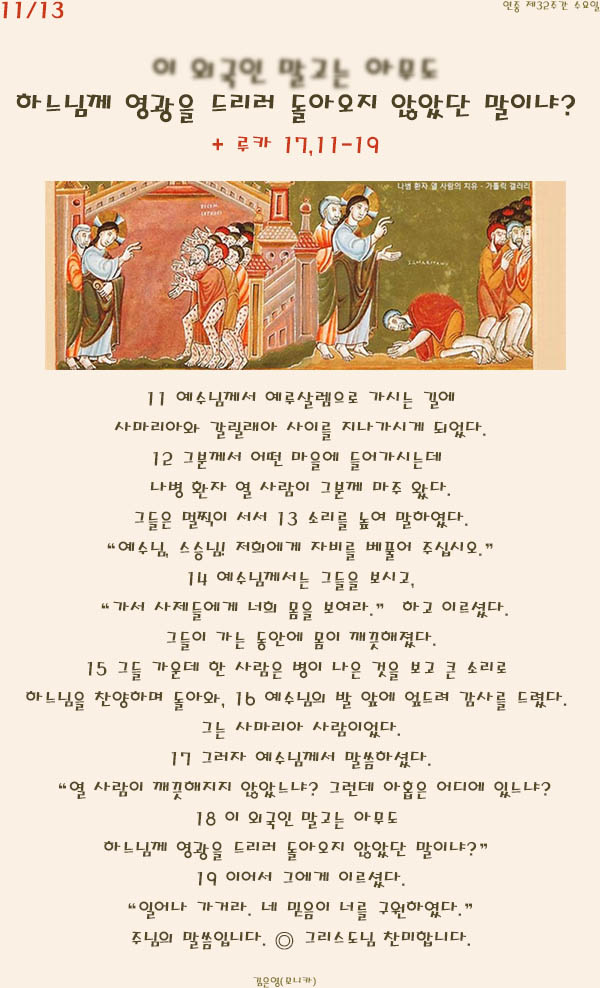 11/13
연중 제32주간 수요일
이 외국인 말고는 아무도
하느님께 영광을 드리러 돌아오지 않았단 말이냐?
+ 루카 17,11-19
나병 환자 열 사람의 치유 - 가톨릭 갤러리
11 예수님께서 예루살렘으로 가시는 길에
사마리아와 갈릴래아 사이를 지나가시게 되었다.
12 그분께서 어떤 마을에 들어가시는데
나병 환자 열 사람이 그분께 마주 왔다.
그들은 멀찍이 서서 13 소리를 높여 말하였다.
“예수님, 스승님! 저희에게 자비를 베풀어 주십시오.”
14 예수님께서는 그들을 보시고,
“가서 사제들에게 너희 몸을 보여라.” 하고 이르셨다.
그들이 가는 동안에 몸이 깨끗해졌다.
15 그들 가운데 한 사람은 병이 나은 것을 보고 큰 소리로
하느님을 찬양하며 돌아와, 16 예수님의 발 앞에 엎드려 감사를 드렸다.
그는 사마리아 사람이었다.
17 그러자 예수님께서 말씀하셨다.
“열 사람이 깨끗해지지 않았느냐? 그런데 아홉은 어디에 있느냐?
18 이 외국인 말고는 아무도
하느님께 영광을 드리러 돌아오지 않았단 말이냐?”
19 이어서 그에게 이르셨다.
“일어나 가거라. 네 믿음이 너를 구원하였다.”
주님의 말씀입니다. ◎ 그리스도님 찬미합니다.
김은영(모니카)